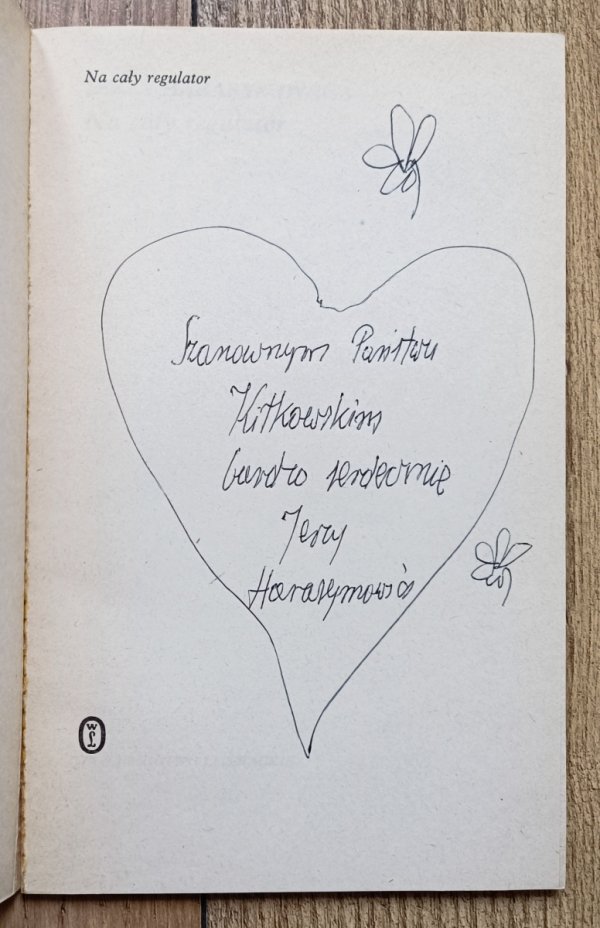 Na cały regulator
Szanownym Państwu
Kitkowskim
bardzo serdecznie
Jerzy
Harasymowicz
WL